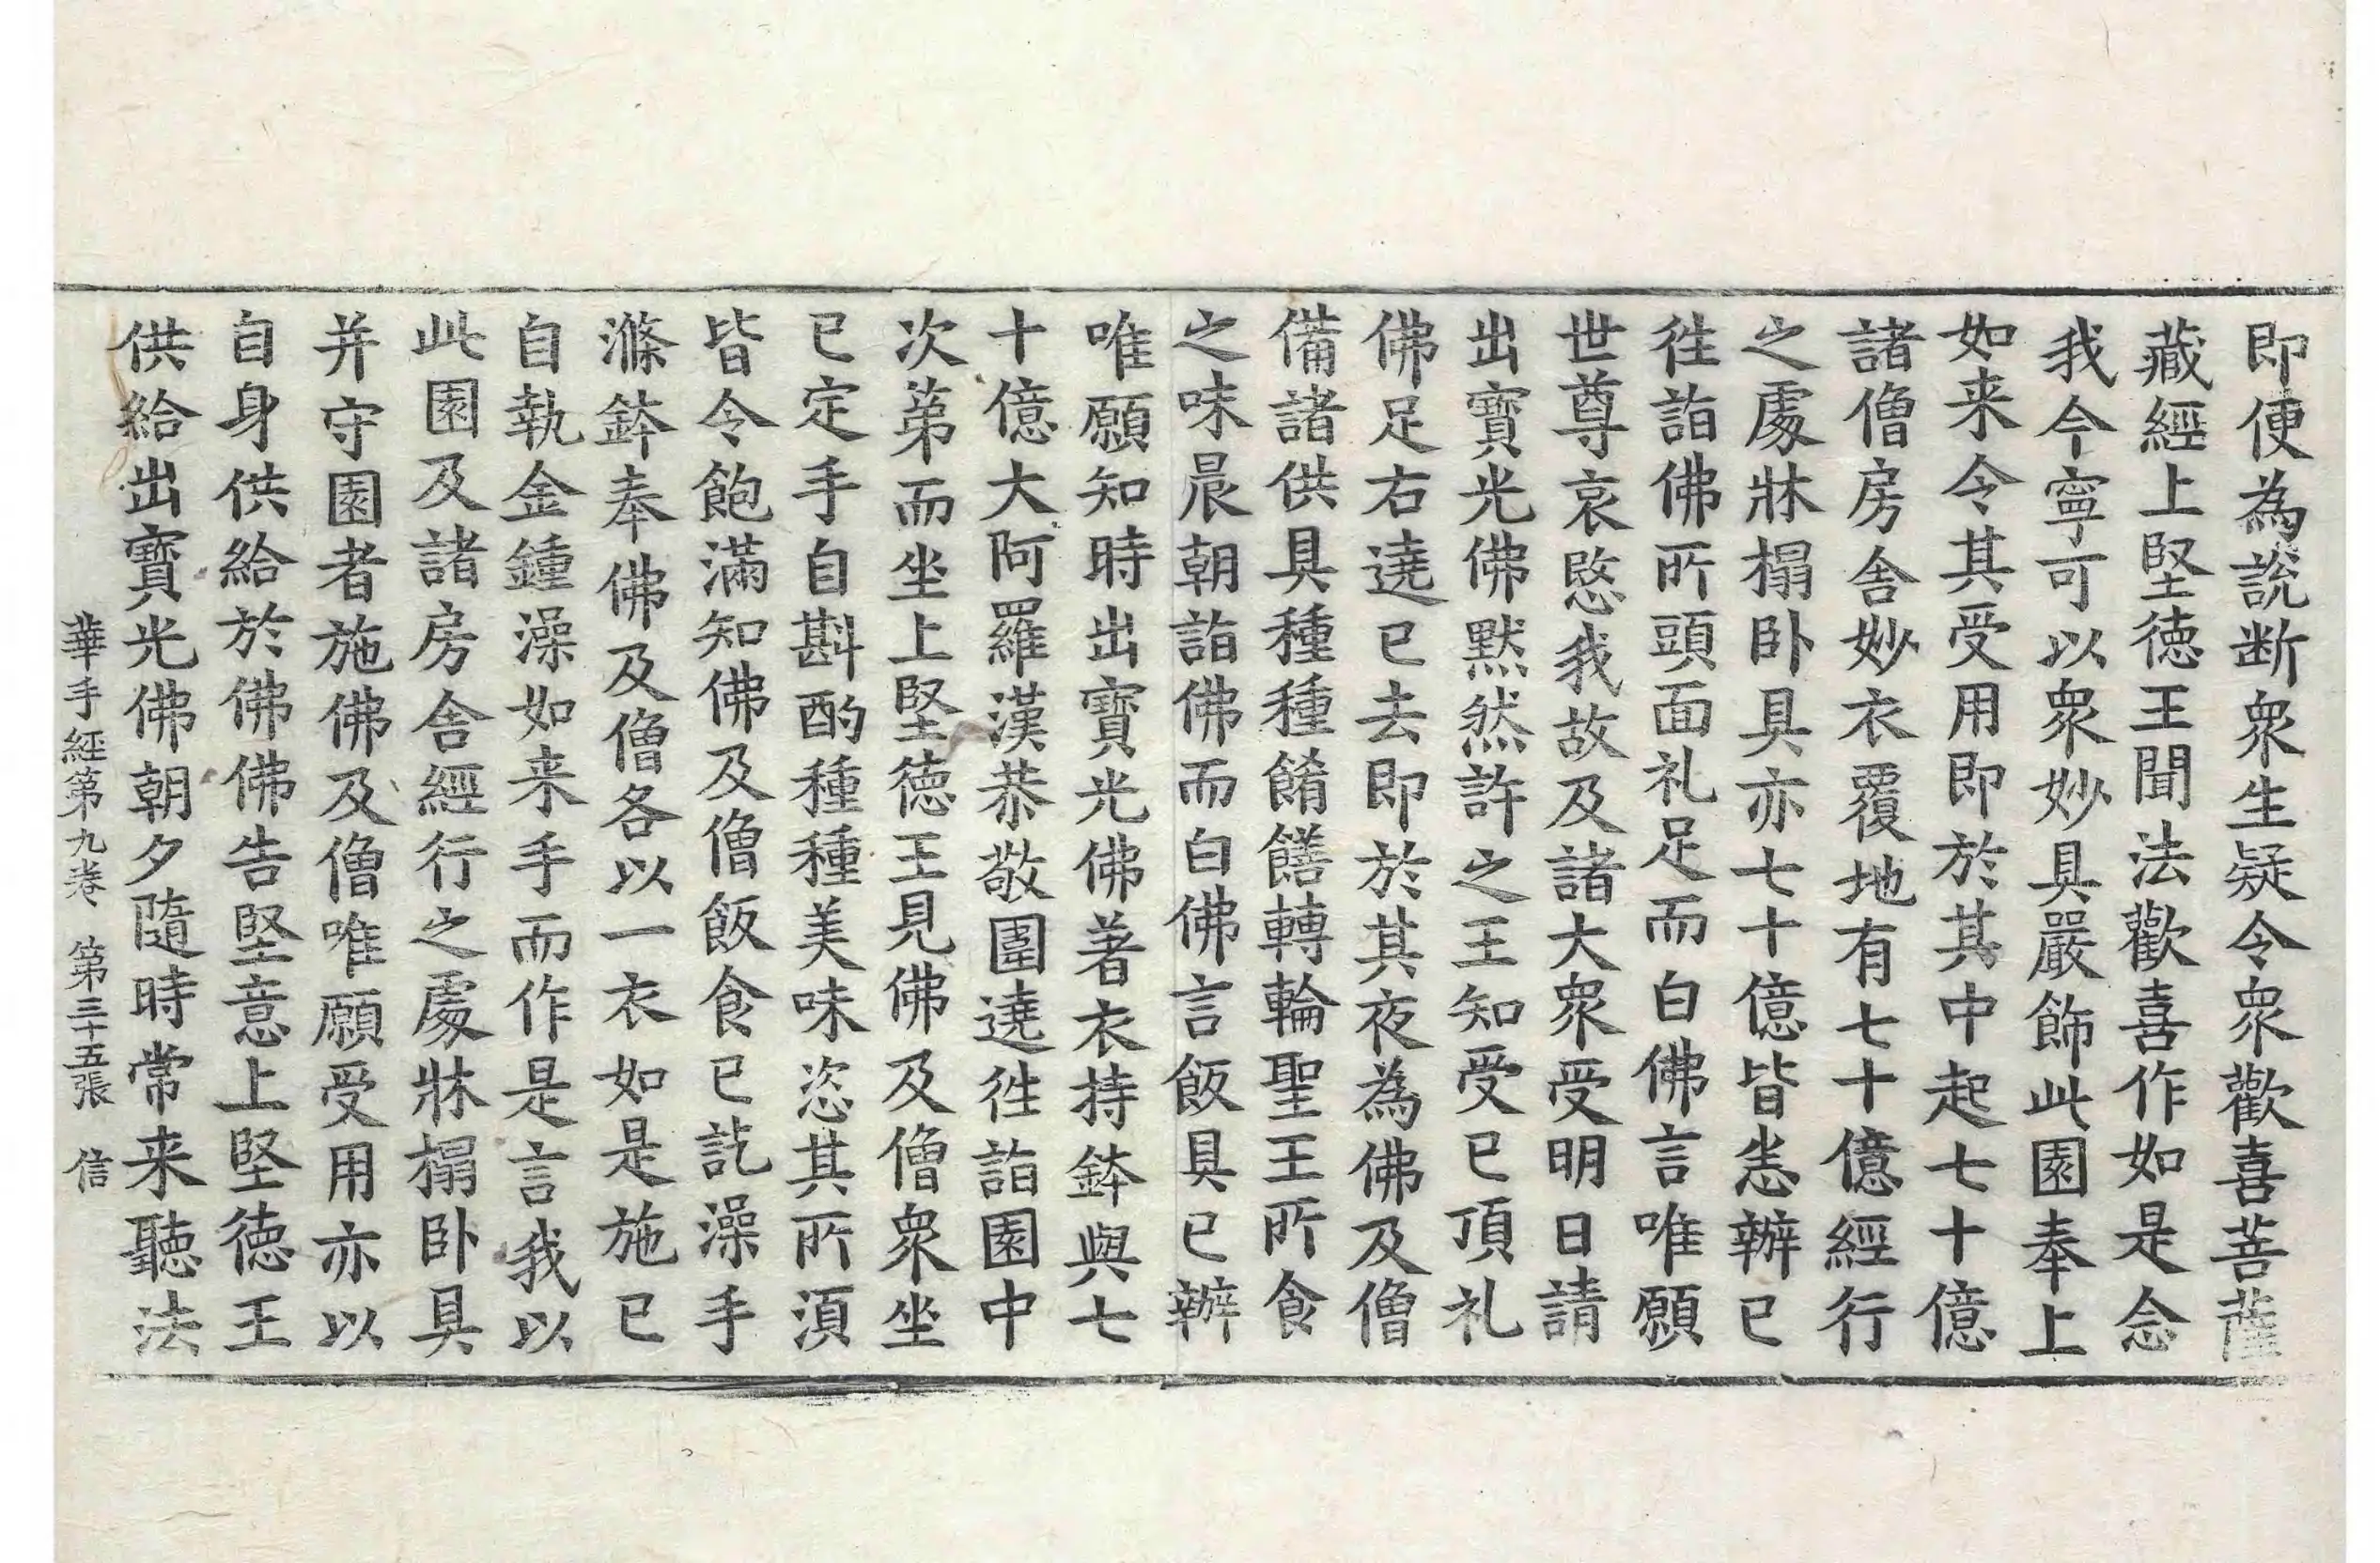 即便為說断衆生疑令衆歡喜菩薩
藏經上堅徳王聞法歡喜作如是念
我今寧可以衆妙具嚴飾此園奉上
如来令其受用即於其中起七十億
諸僧房舍妙衣覆地有七十億經行
之處牀榻卧具亦七十億皆悉辦已
往詣佛所頭面礼足而白佛言唯願
世尊哀愍我故及諸大衆受明日請
出寶光佛默然許之王知受已頂礼
佛足右遶已去即於其夜為佛及僧
備諸供具種種餚饍轉輪聖王所食
之味晨朝詣佛而白佛言飯具已辦
唯願知時出寶光佛著衣持鉢與七
十億大阿羅漢恭敬圍遶往詣園中
次第而坐上堅徳王見佛及僧衆坐
已定手自斟酌種種美味恣其所湏
皆令飽滿知佛及僧飯食已訖澡手
滌鉢奉佛及僧各以一衣如是施已
自執金鍾澡如来手而作是言我以
此園及諸房舍經行之處牀榻卧具
并守園者施佛及僧唯願受用亦以
自身供給於佛佛告堅意上堅徳王
供給出寶光佛朝夕隨時常来聽法
華手經第九卷 第三十五張 信